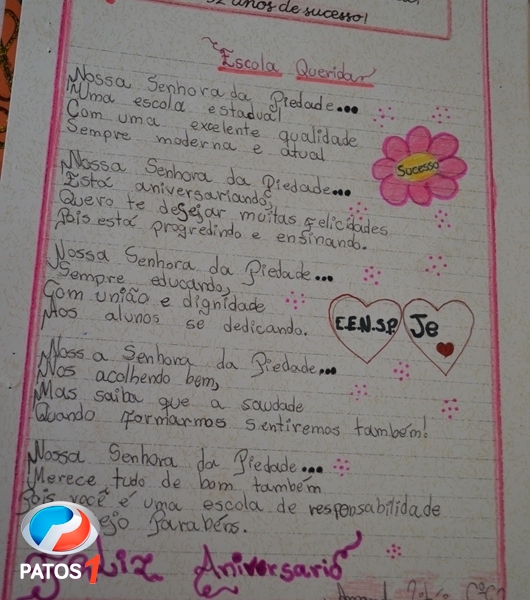 anos de sucesso!
Escola Querida
Nossa Senhora da Piedade...
Numa escola estadual
Com uma excelente qualidade
Sempre moderna e atual
Sucesso
Nossa Senhora da Piedade...
Está aniversariando,
Quero te desejar muitas felicidades
Pois está progredindo e ensinando.
Nossa Senhora da Piedade...
Sempre educando,
Com união e dignidade
Aos alunos se dedicando.
E.E.N.S.P.
Je
Nossa Senhora da Piedade...
Nos acolhendo bem,
Mas saiba que a saudade
Quando formarmos sentiremos também!
Nossa Senhora da Piedade...
Merece tudo de bom também
Pois você é uma escola de responsabilidade
Parabéns.
Feliz Aniversario
PATOS1